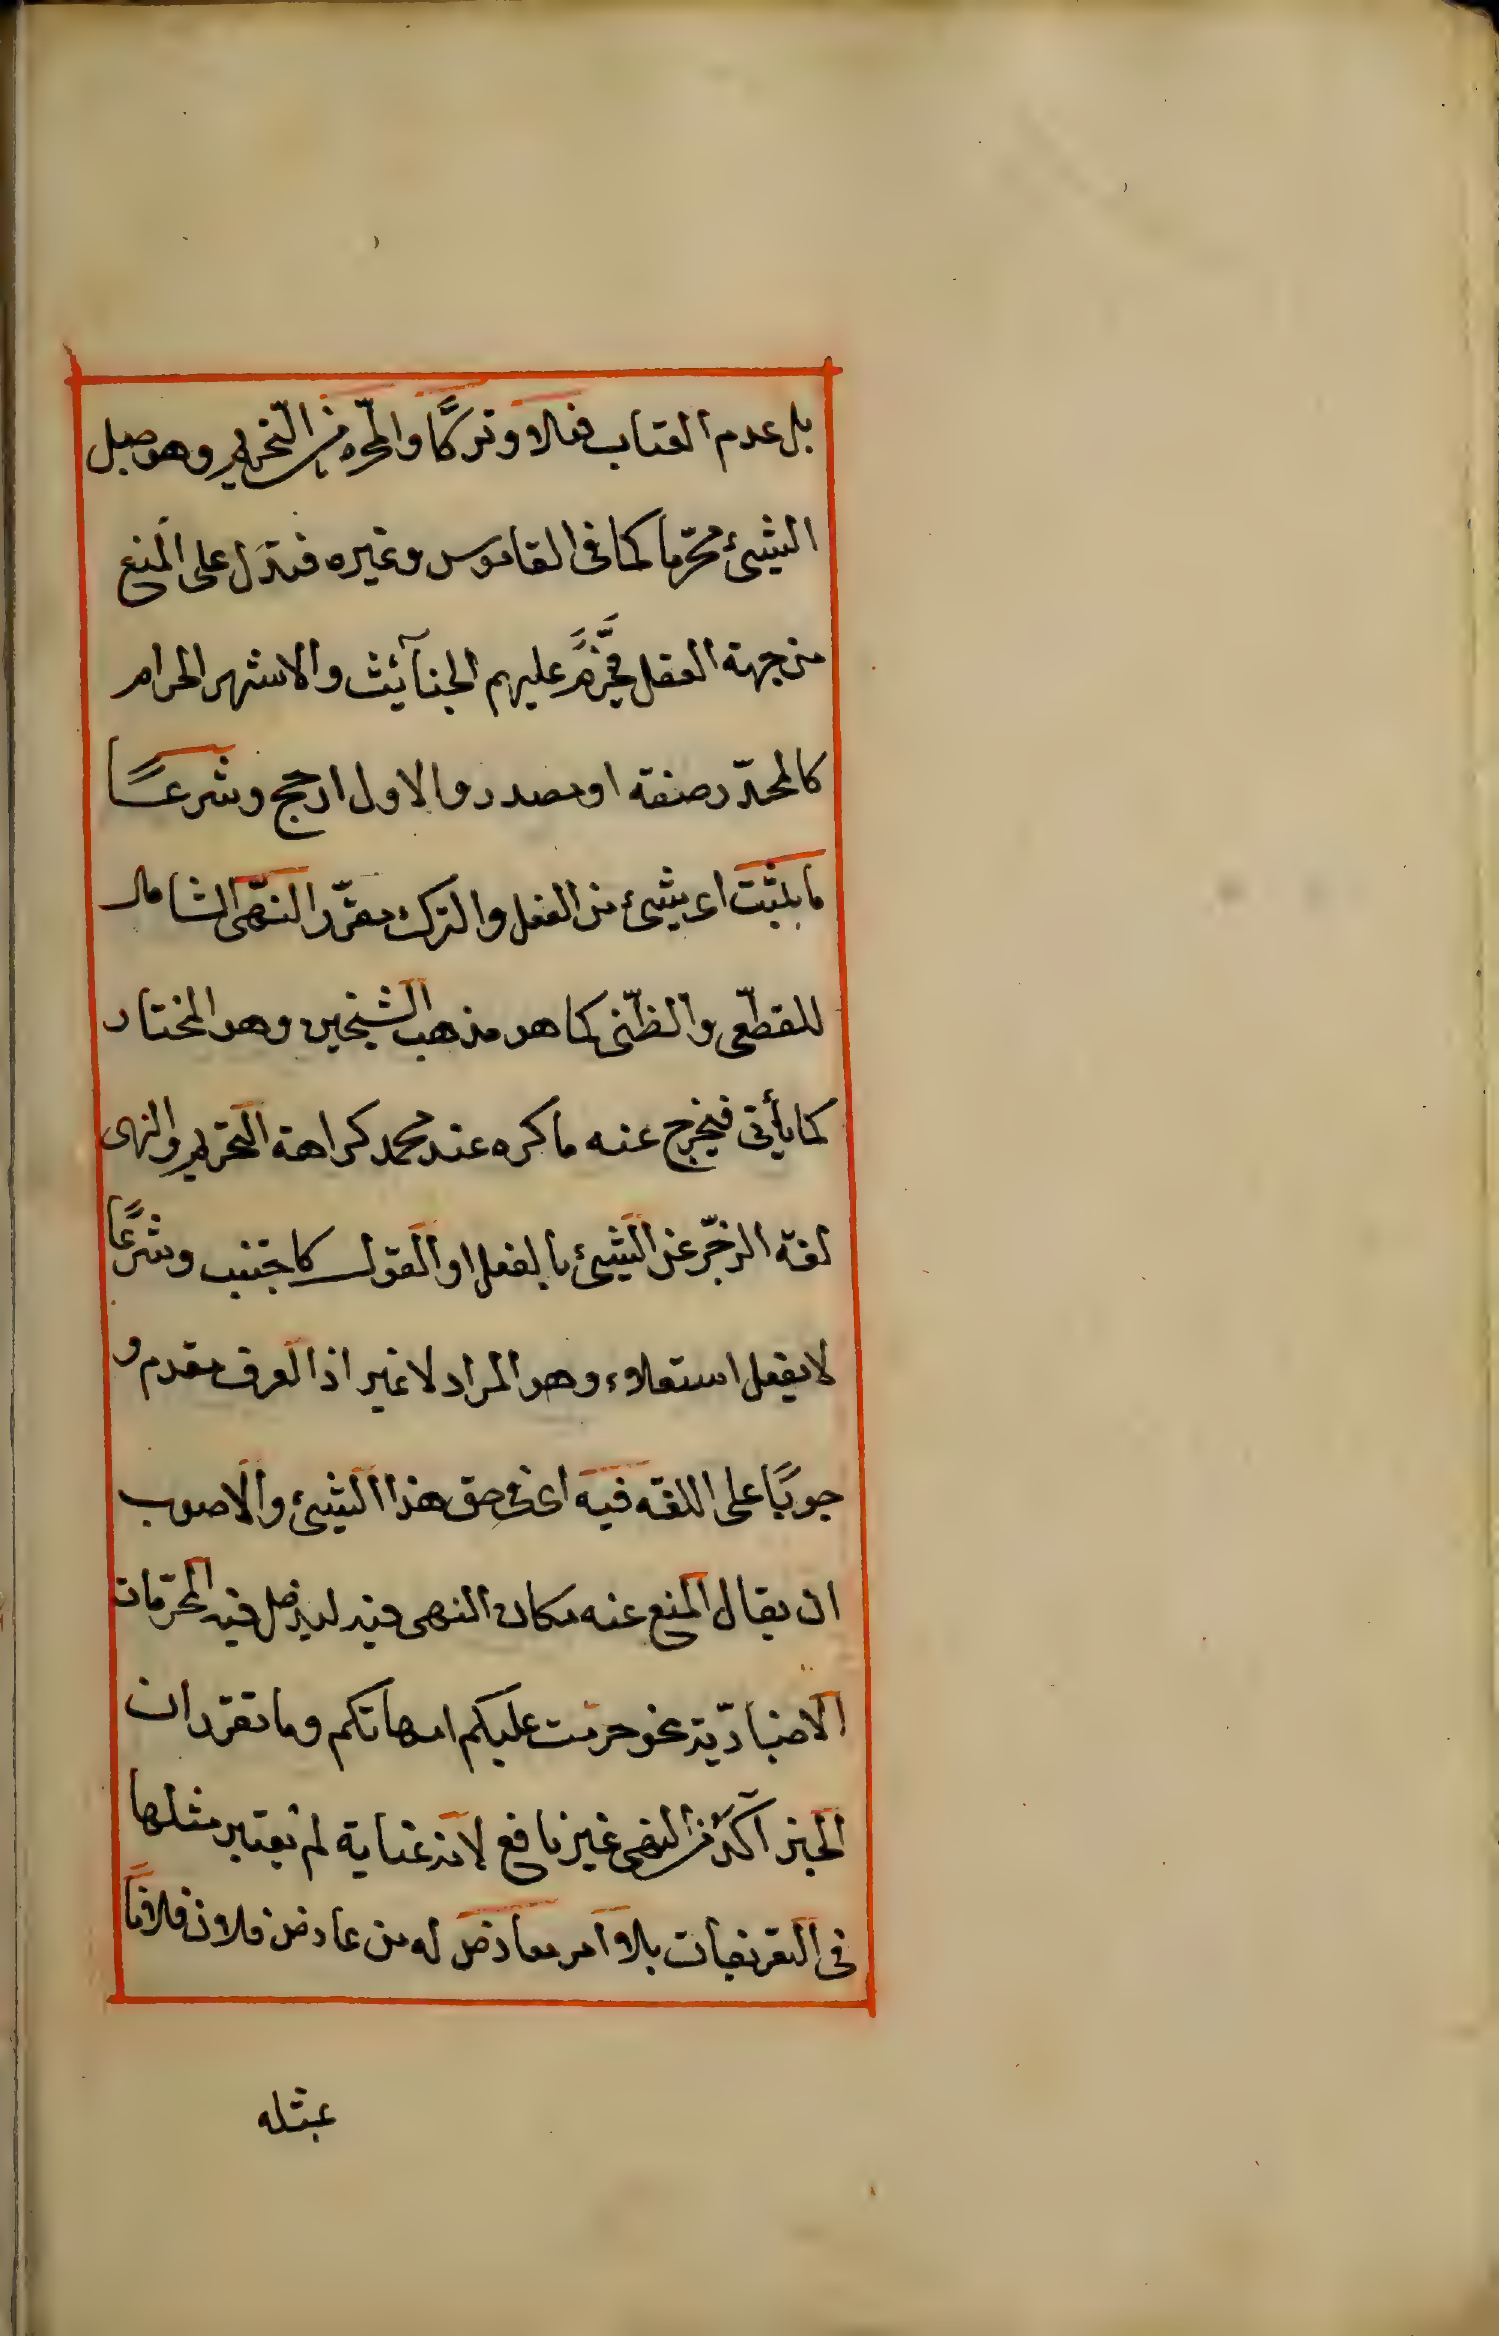 بل عدم العتاب فعلا وتركًا والمحرّم من التّحريم وهو جعل
الشيئ محرّما كما فى القاموس وغيره فتدل على المنع
من جهة العقل فيحرّم عليهم الخبآئث والاشهر الحرام
كالمحدّ رصفته او مصدر والاول ارجح وشرعًا
ما يثبت اى شيئ من الفعل والترك مقرّر النّهى الشامل
للقطّعى والظّنى كما هو مذهب الشيخين وهو المختار
كما يأتى فيخرج عنه ما كره عند محمد كراهة التحريم والنهى
لغة الزجّر عن الشيئ بالفعل او القول كاجتنب وشرعًا
لا يفعل استعلاء وهو المراد لا غير اذ العرف مقدم و
جوبًا على اللغة فيه اى فى حق هذا الشيئ والاصوب
ان يقال المنع عنه مكان النهى فيه ليدخل فيه المحرّمات
الاخباريّة نحو حرّمت عليكم امهاتكم وما تقرّر ان
الخبر آكد من النهى غير نافع لانه عناية لم تعتبر مثلها
فى التعريفات بلا امر معارض له من عارض فلان فلانًا
بمثله